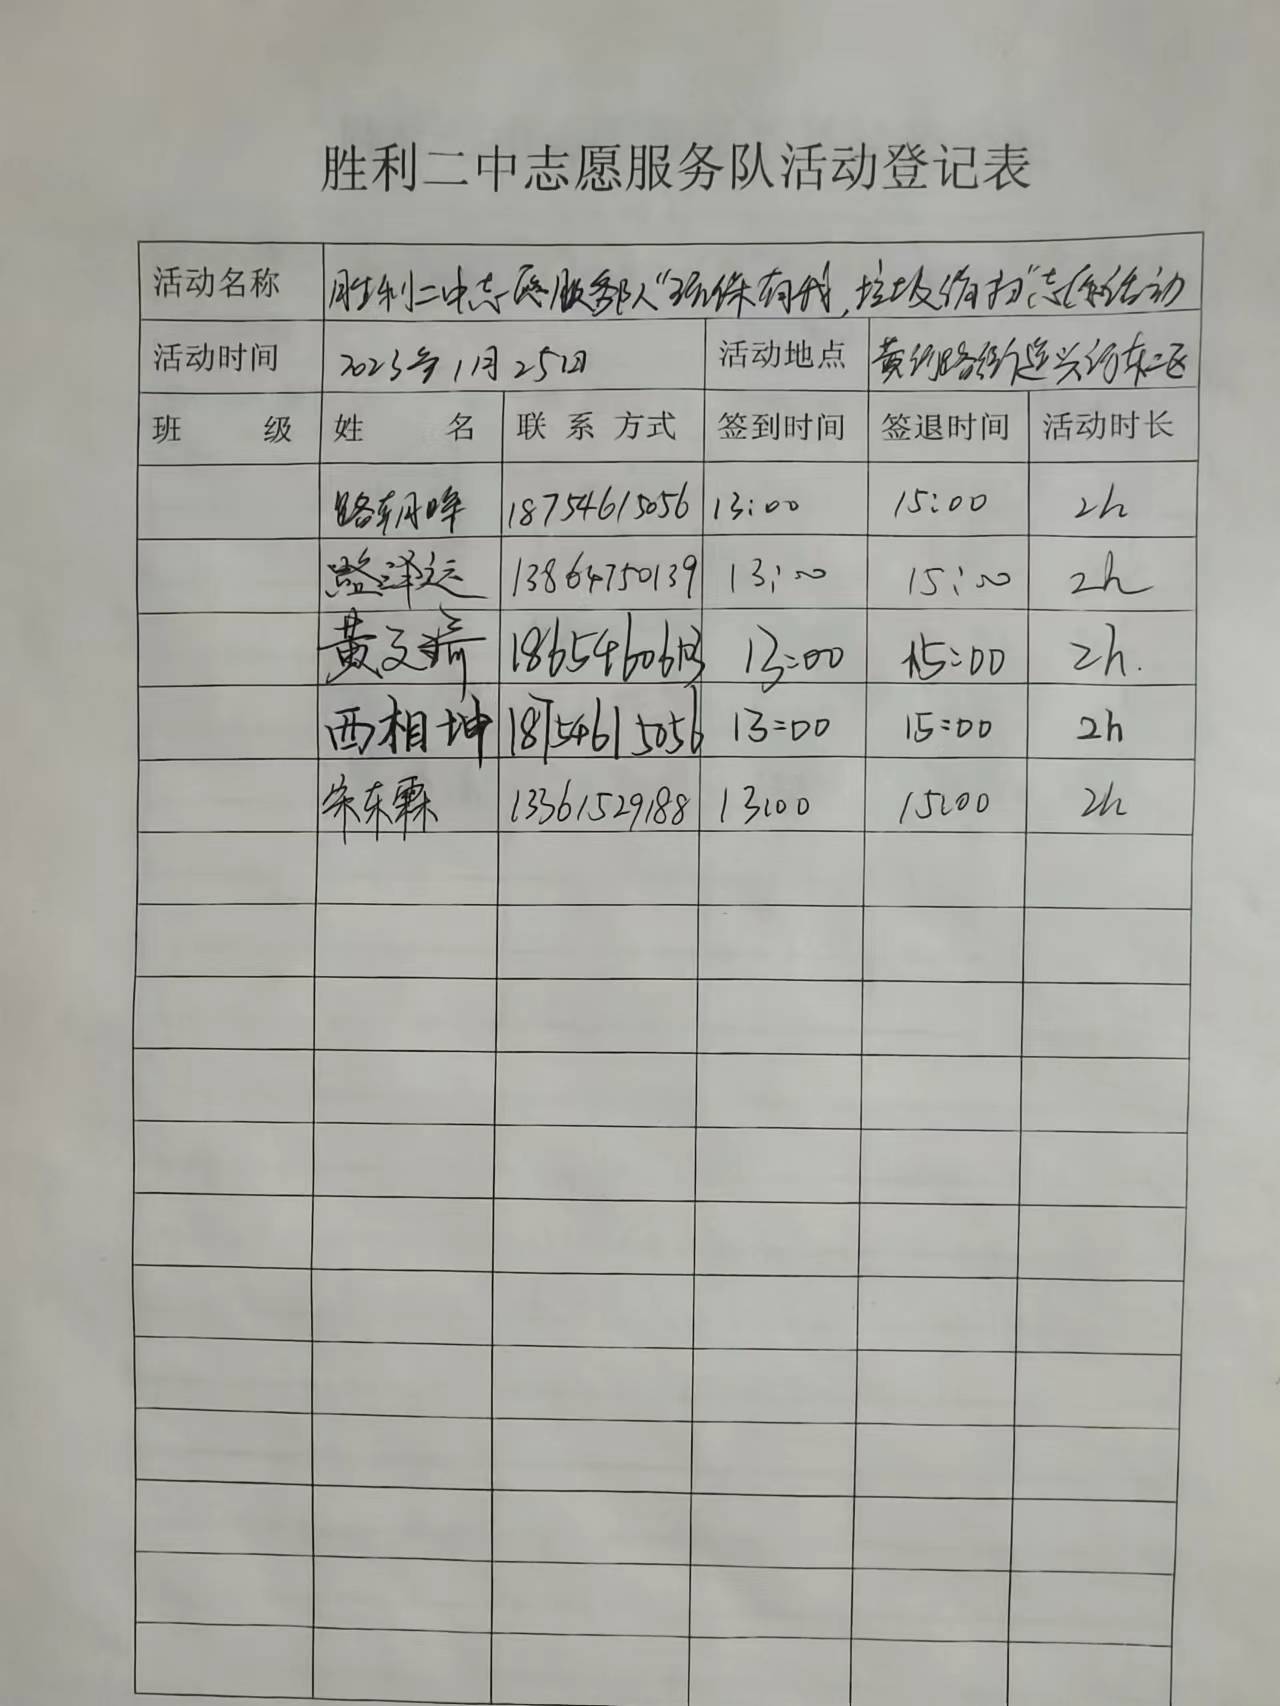 胜利二中志愿服务队活动登记表
活动名称 胜利二中志愿服务队"环保有我,垃圾清扫"志愿活动
活动时间 2023年1月25日 活动地点 黄河路街道兴河东二区
班 级 姓 名 联 系 方式 签到时间 签退时间 活动时长
路朝晖 18754615056 13:00 15:00 2h
泽运 13864750139 13:00 15:00 2h
黄文 13:00 15:00 2h.
西相坤 18754615056 13:00 15:00 2h
宋东霖 13361529188 13:00 15:00 2h